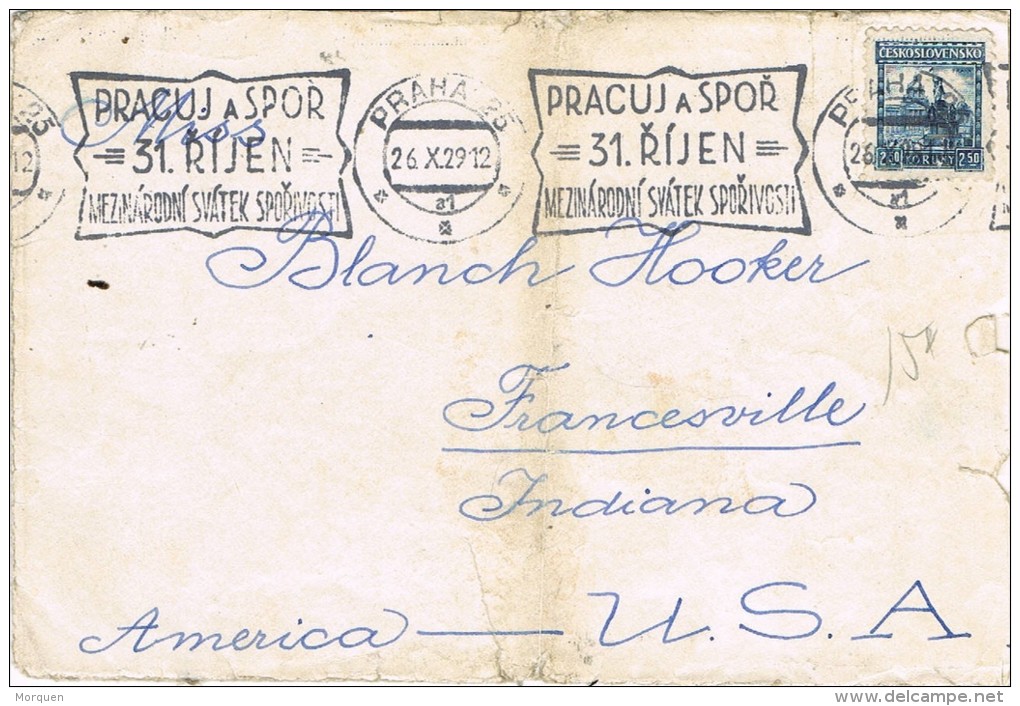 ČESKOSLOVENSKO
2·50 KORUNY 2·50
25
12
PRACUJ A SPOŘ
31. ŘÍJEN
MEZINÁRODNÍ SVÁTEK SPOŘIVOSTI
PRAHA 25
26.X.29 12
a1
PRACUJ A SPOŘ
31. ŘÍJEN
MEZINÁRODNÍ SVÁTEK SPOŘIVOSTI
Miss
Blanch Hooker
Francesville
Indiana
America — U.S.A
Morquen
delcampe.net